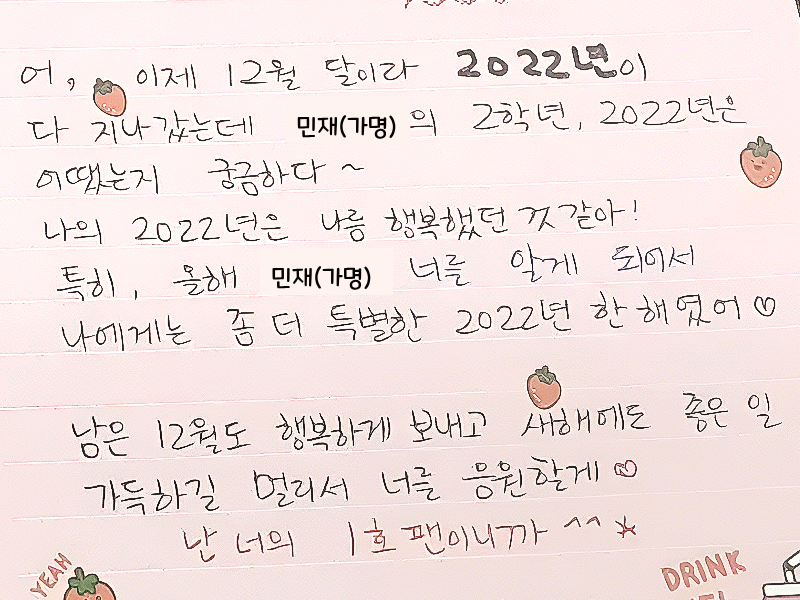 어, 이제 12월 달이라 2022년이
다 지나갔는데 민재(가명)의 2학년, 2022년은
어땠는지 궁금하다~
나의 2022년은 나름 행복했던 것 같아!
특히, 올해 민재(가명) 너를 알게 되어서
나에게는 좀 더 특별한 2022년 한 해였어♡
남은 12월도 행복하게 보내고 새해에도 좋은 일
가득하길 멀리서 너를 응원할게♡
난 너의 1호팬이니까^^★
YEAH
DRINK